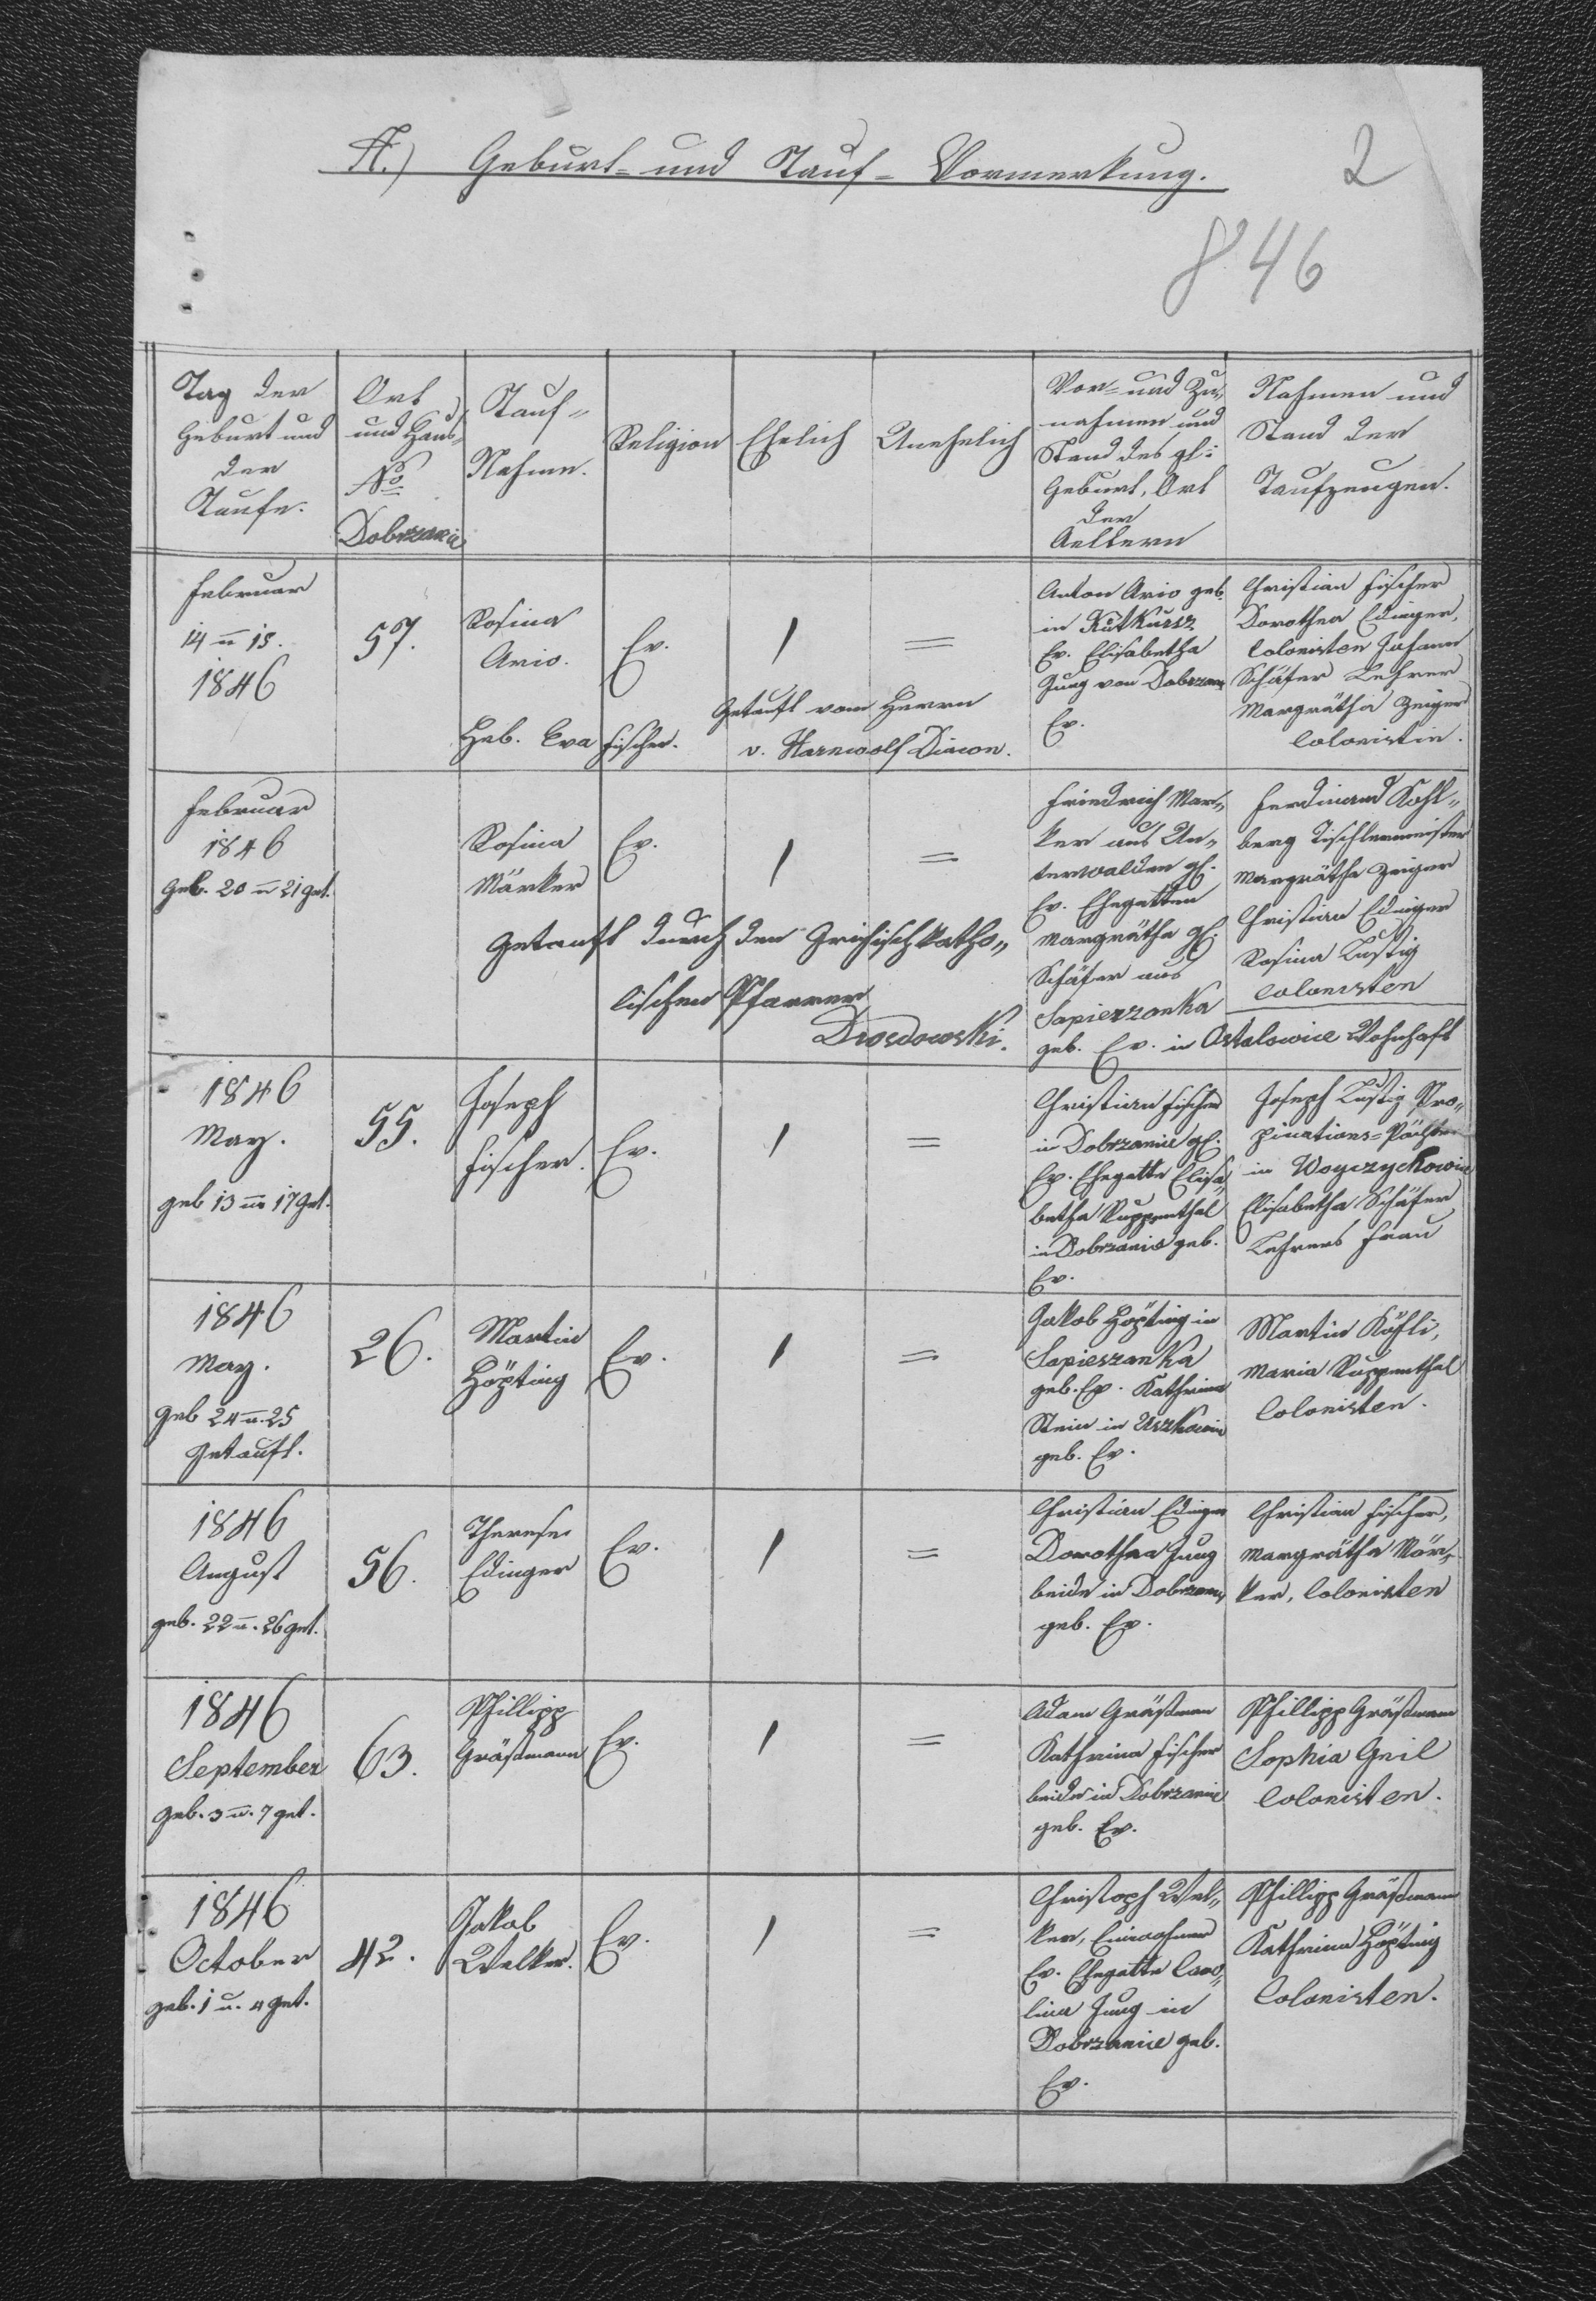 A.) Geburt- und Tauf-Vormerkung.
2
846
Tag der
Geburt und
der
Taufe.
Ort
und Haus-
No
Dobrzanica
Tauf-
Nahme.
Religion
Ehelich
Unehelich
Vor- und Zu-
nahmen und
Stand des gl:
Geburt, Ort
der
Aeltern
Nahmen und
Stand der
Taufzeugen.
Februar
14 u 15.
1846
57.
Rosina
Ario.
Ev.
1
=
Heb. Eva Fischer.
Getauft vom Herrn
v. Harnwolf Diacon.
Anton Ario geb.
in
Ev. Elisabetha
Jung von Dobrzan
Ev.
Christian Fischer
Dorothea Edinger,
Colonisten Johann
Schäfer Lehrer
Margrätha Zeiger
Colonistin.
Februar
1846
geb. 20 u 21 get.
Rosina
Märker
Ev.
1
=
Getauft durch den Grichischkatho-
lischen Pfarrer
Drosdowski.
Friedrich Mär-
ker aus Un-
terwalden gl.
Ev. Ehegatten
Margrätha gl.
Schäfer aus
Sapiezanka
geb. Ev. in Ostalowice Wohnhaft
Ferdinand Kohl-
berg Tischlermeister
Margrätha Zeiger
Christian Edinger
Rosina Lustig
Colonisten
1846
May.
geb 13 u 17 get.
55.
Joseph
Fischer.
Ev.
1
=
Christian Fischer
in Dobrzanice gl.
Ev. Ehegatte Elisa-
betha Ruppenthal
in Dobrzanice geb.
Ev.
Joseph Lustig Pro-
pinations-Pächter
in Woyczyckowice
Elisabetha Schäfer
Lehrers Frau
1846
May.
geb 24 u. 25
getauft.
26.
Martin
Höpting
Ev.
1
=
Jakob Höpting in
Sapieszanka
geb. Ev. Kathrina
Stein in Uszkowice
geb. Ev.
Martin Köhli,
Maria Ruppenthal
Colonisten.
1846
August
geb. 22 u. 26 get.
56.
Therese
Edinger
Ev.
1
=
Christian Edinger
Dorothea Jung
beide in Dobrzan
geb. Ev.
Christian Fischer,
Margrätha Mär-
ker, Colonisten
1846
September
geb. 3 u. 7 get.
63.
Phillipp
Gräßmann
Ev.
1
=
Adam Gräßman
Kathrina Fischer
beide in Dobrzanice
geb. Ev.
Phillipp Gräßmann
Sophia Geil
Colonisten.
1846
October
geb. 1 u. 4 get.
42.
Jakob
Welker.
Ev.
1
=
Christoph Wel-
ker, Einwohner
Ev. Ehegatte Caro-
lina Jung in
Dobrzanice geb.
Ev.
Phillipp Gräßmann
Kathrina Höpting
Colonisten.